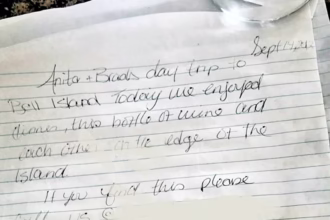 Sept
Anita + Brads day trip to
Bell Island Today we enjoyed
dinner, this bottle of wine and
each other on the edge of the
Island
If you find this please